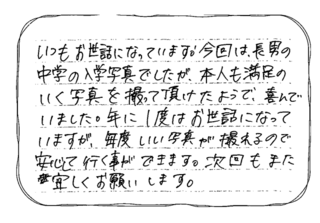 いつもお世話になっています。今回は、長男の
中学の入学写真でしたが、本人も満足の
いく写真を撮って頂けたようで、喜んで
いました。年に1度はお世話になって
いますが、毎度いい写真が撮れるので
安心して行く事ができます。次回もまた
宜しくお願いします。